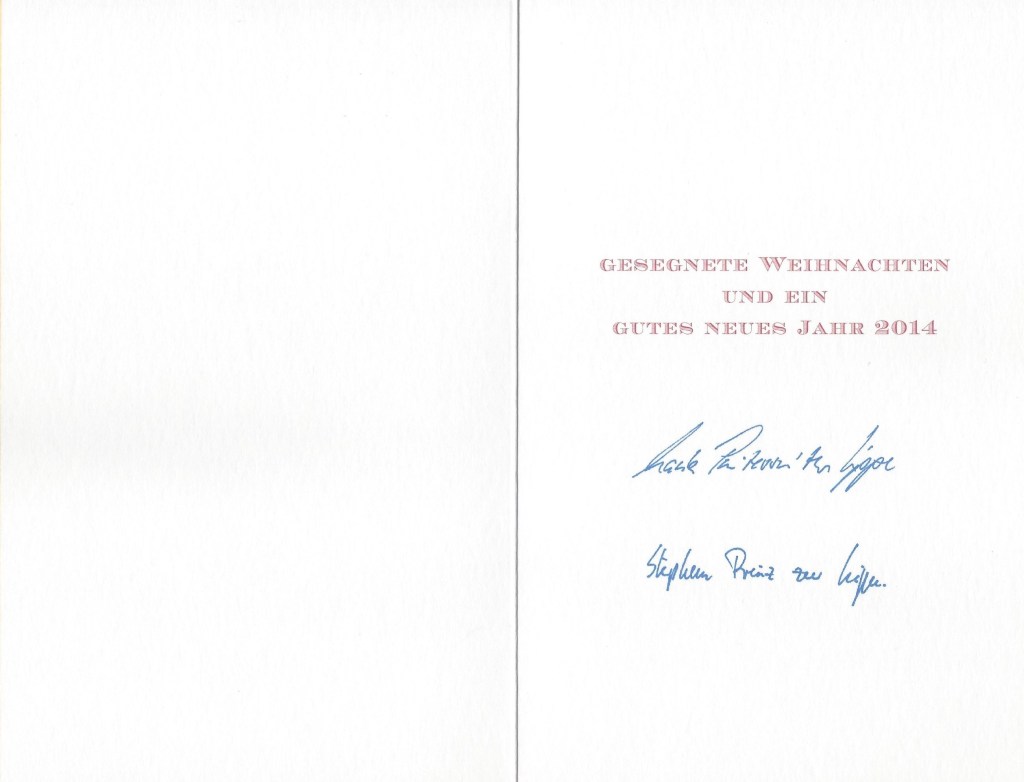 GESEGNETE WEIHNACHTEN
UND EIN
GUTES NEUES JAHR 2014
Prinzessin zur Lippe
Stephan Prinz zur Lippe.